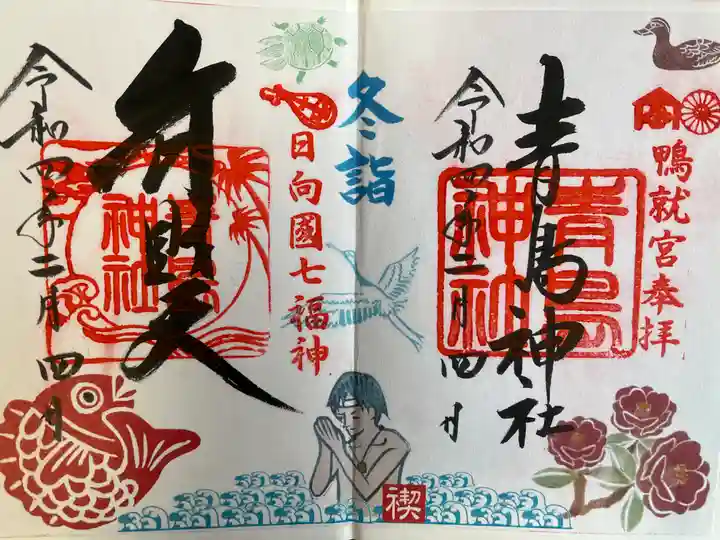 鴨就宮奉拝
青島神社
青島神社
令和四年二月四日
冬詣
日向國七福神
弁財天
青島神社
令和四年二月四日
禊